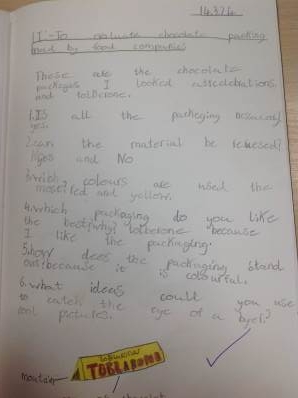 14.3.24
LI:-To evaluate chocolate packing
used by food companies
These are the chocolate
packages I looked at:celebrations
and tolberone.
1.Is all the packeging nessacary
yes.
2.can the material be reused?
Yes and No
3.which colours are used the
most?red and yellow.
4.which packaging do you like
the best?why? tolberone because
I like the packaging.
5.how does the packaging stand
out?because it is colourful.
6.what ideas could you use
to catch the eye of a
cool pictures.
TOBLARONE
mountain
chocolat